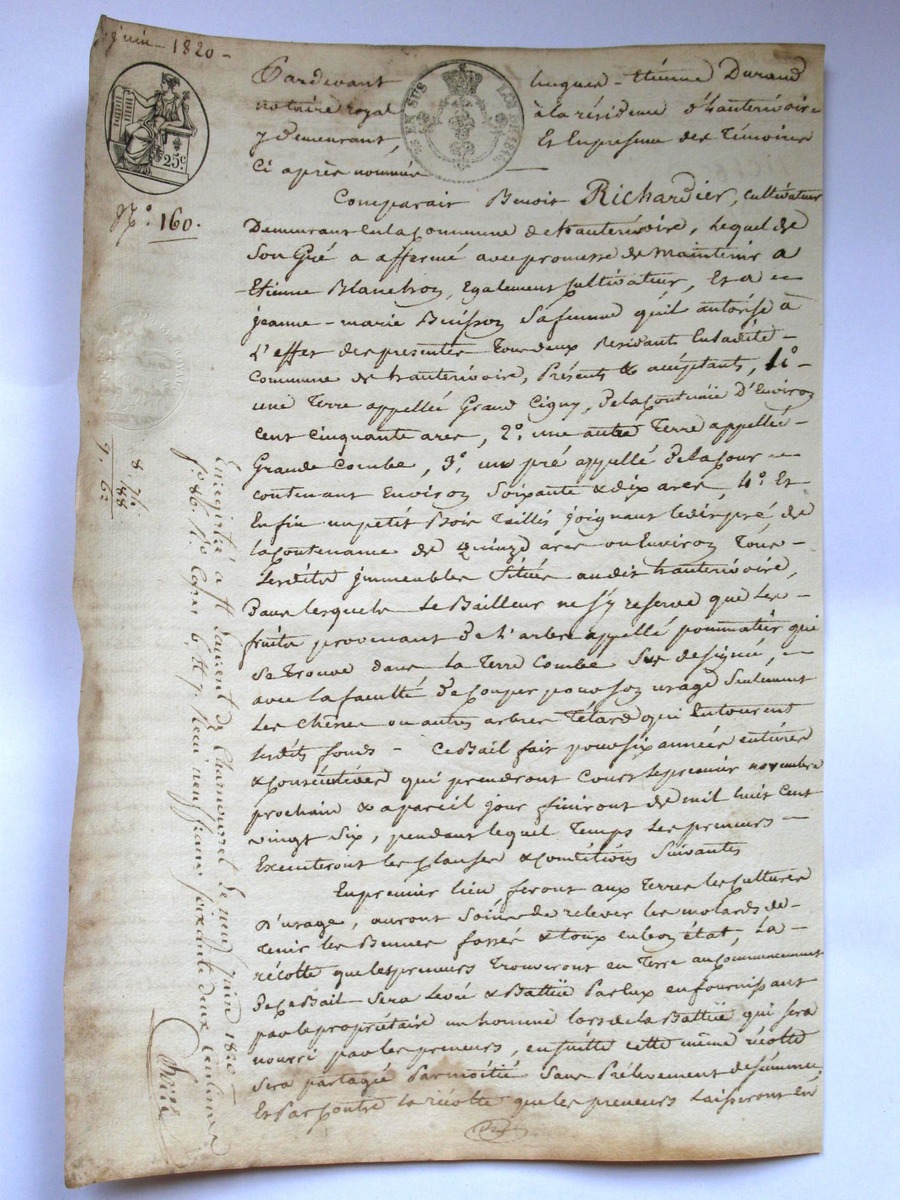 juin - 1820 -
25c
EN SUS
N.o 160.
Pardevant Hugues - Etienne Durand
notaire royal à la résidence d'hauterivoire
y Demeurant, Et En presence des Témoins
Ci après nommés
Comparait Benoit Richardier, Cultivateur
Demeurant En la Commune de hauterivoire, Lequel de
Son Gré a affermé avec promesse de maintenir a
Etienne Blanchon, Egalement Cultivateur, Et a
jeanne - marie Buisson Sa femme qu'il autorise à
L'effet des presentes Tous deux Residants En ladite
Commune de hauterivoire, Présents & acceptants, 1o
une Terre appellée Grand Cigny, De la Contenüe D'Environ
cent cinquante ares, 2o une autre Terre appellée
Grande Combe, 3o un pré appellé De la Cour
contenant Environ Soixante & dix ares, 4o Et
Enfin un petit Bois Taillis joignant ledit pré de
la Contenance de Quinze ares ou Environ Tous
Lesdits jmmeubles Situés audit hauterivoire,
Dans lesquels Le Bailleur ne s'y reserve que Les
fruits provenant De l'arbre appellé pommatier qui
Se Trouve dans la Terre Combe Sus designée,
avec la faculté De Couper pour Son usage Seulement
Les chênes ou autres arbres Têtard qui Entourent
lesdits fonds - Ce Bail fait pour six années entières
& Consecutives qui prendront Cours Le premier novembre
prochain & a pareil jour finiront de mil huit Cent
vingt Six, pendant lequel Temps Les preneurs
Executeront les Clauses & Conditions Suivantes
En premier lieu feront aux Terres les Cultures
D'usage, auront Soins de relever les molards de
Tenir les Bennes fossés & Cloux en bon état, La
récolte que les preneurs Trouveront en Terre au Commencement
De Ce Bail Sera Levée & Battüe Par Eux en fournissant
par le propriétaire un homme lors de la Battüe qui sera
nourri par les preneurs, en suitte cette même récolte
sera partagée Par moitié Sans Prélevement de semence,
Et Par Contre la récolte que les preneurs Laisseront En
8. 74
88
9. 62
Enregistré à St Laurent de Chamousset le neuf juin 1820
f.o 86 R.o Cases 6. & 7. Reçu neuf francs soixante deux Centimes